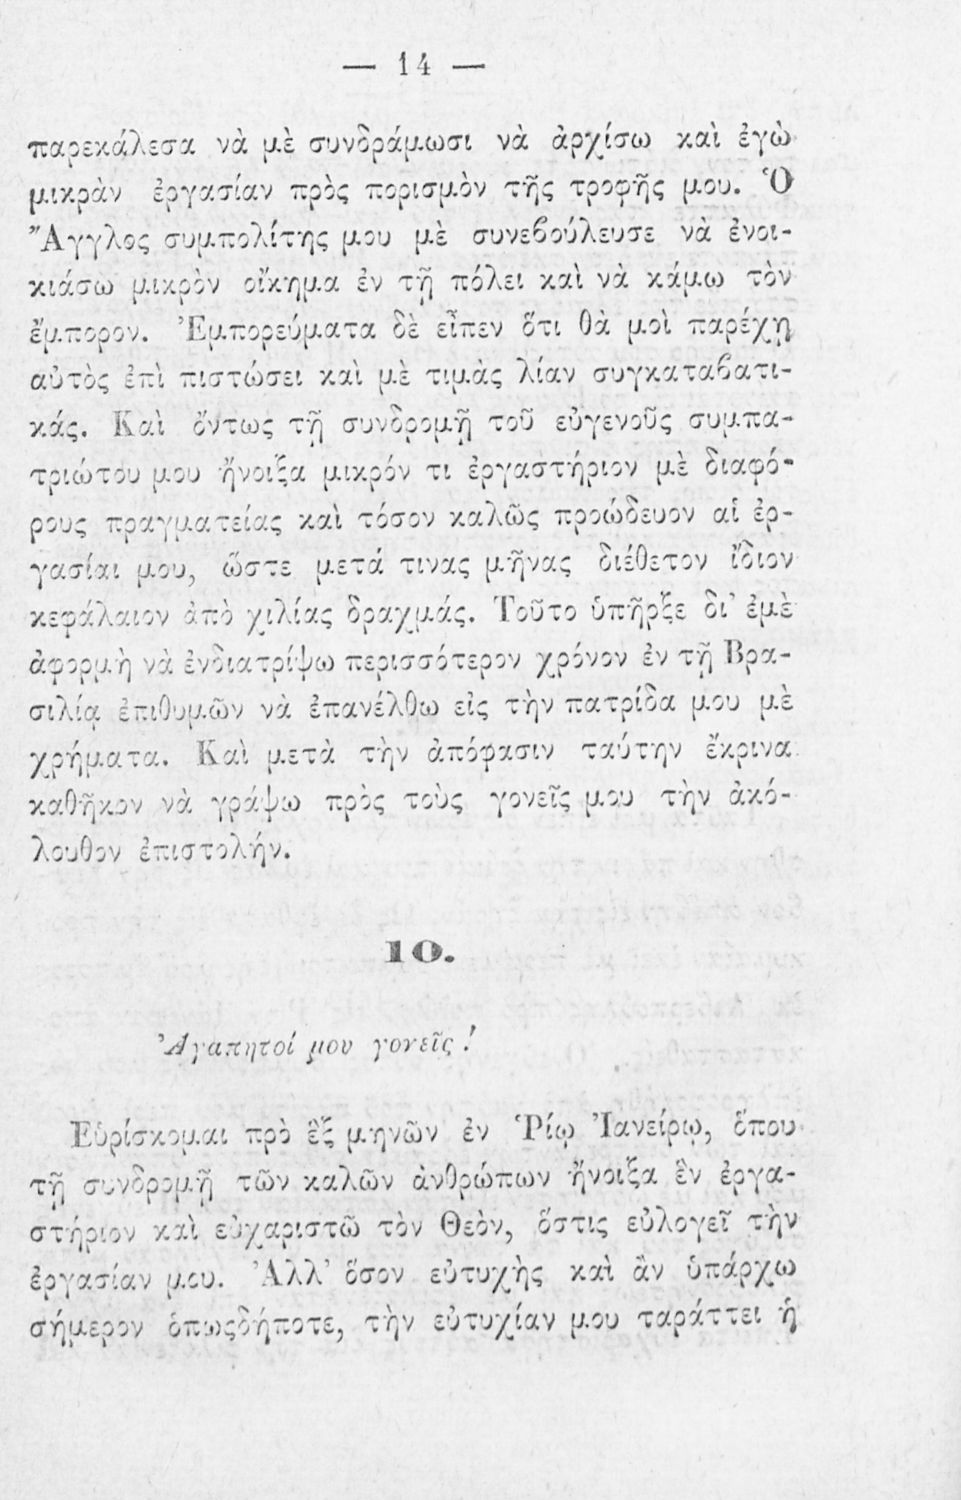 — 14 —
παρεκάλεσα νὰ μὲ συνδράμωσι νὰ ἀρχίσω καὶ ἐγὼ
μικρὰν ἐργασίαν πρὸς πορισμὸν τῆς τροφῆς μου. Ὁ
Ἄγγλος συμπολίτης μου μὲ συνεβούλευσε νὰ ἐνοι-
κιάσω μικρὸν οἴκημα ἐν τῇ πόλει καὶ νὰ κάμω τὸν
ἔμπορον. Ἐμπορεύματα δὲ εἶπεν ὅτι θὰ μοὶ παρέχῃ
αὐτὸς ἐπὶ πιστώσει καὶ μὲ τιμὰς λίαν συγκαταβατι-
κάς. Καὶ ὄντως τῇ συνδρομῇ τοῦ εὐγενοῦς συμπα-
τριώτου μου ἤνοιξα μικρόν τι ἐργαστήριον μὲ διαφό-
ρους πραγματείας καὶ τόσον καλῶς προώδευον αἱ ἐρ-
γασίαι μου, ὥστε μετά τινας μῆνας διέθετον ἴδιον
κεφάλαιον ἀπὸ χιλίας δραχμάς. Τοῦτο ὑπῆρξε δι’ ἐμὲ
ἀφορμὴ νὰ ἐνδιατρίψω περισσότερον χρόνον ἐν τῇ Βρα-
σιλίᾳ ἐπιθυμῶν νὰ ἐπανέλθω εἰς τὴν πατρίδα μου μὲ
χρήματα. Καὶ μετὰ τὴν ἀπόφασιν ταύτην ἔκρινα
καθῆκον νὰ γράψω πρὸς τοὺς γονεῖς μου τὴν ἀκό-
λουθον ἐπιστολήν.
10.
Ἀγαπητοί μου γονεῖς !
Εὑρίσκομαι πρὸ ἓξ μηνῶν ἐν Ῥίῳ Ἰανείρῳ, ὅπου
τῇ συνδρομῇ τῶν καλῶν ἀνθρώπων ἤνοιξα ἓν ἐργα-
στήριον καὶ εὐχαριστῶ τὸν Θεὸν, ὅστις εὐλογεῖ τὴν
ἐργασίαν μου. Ἀλλ’ ὅσον εὐτυχὴς καὶ ἂν ὑπάρχω
σήμερον ὁπωςδήποτε, τὴν εὐτυχίαν μου ταράττει ἡ